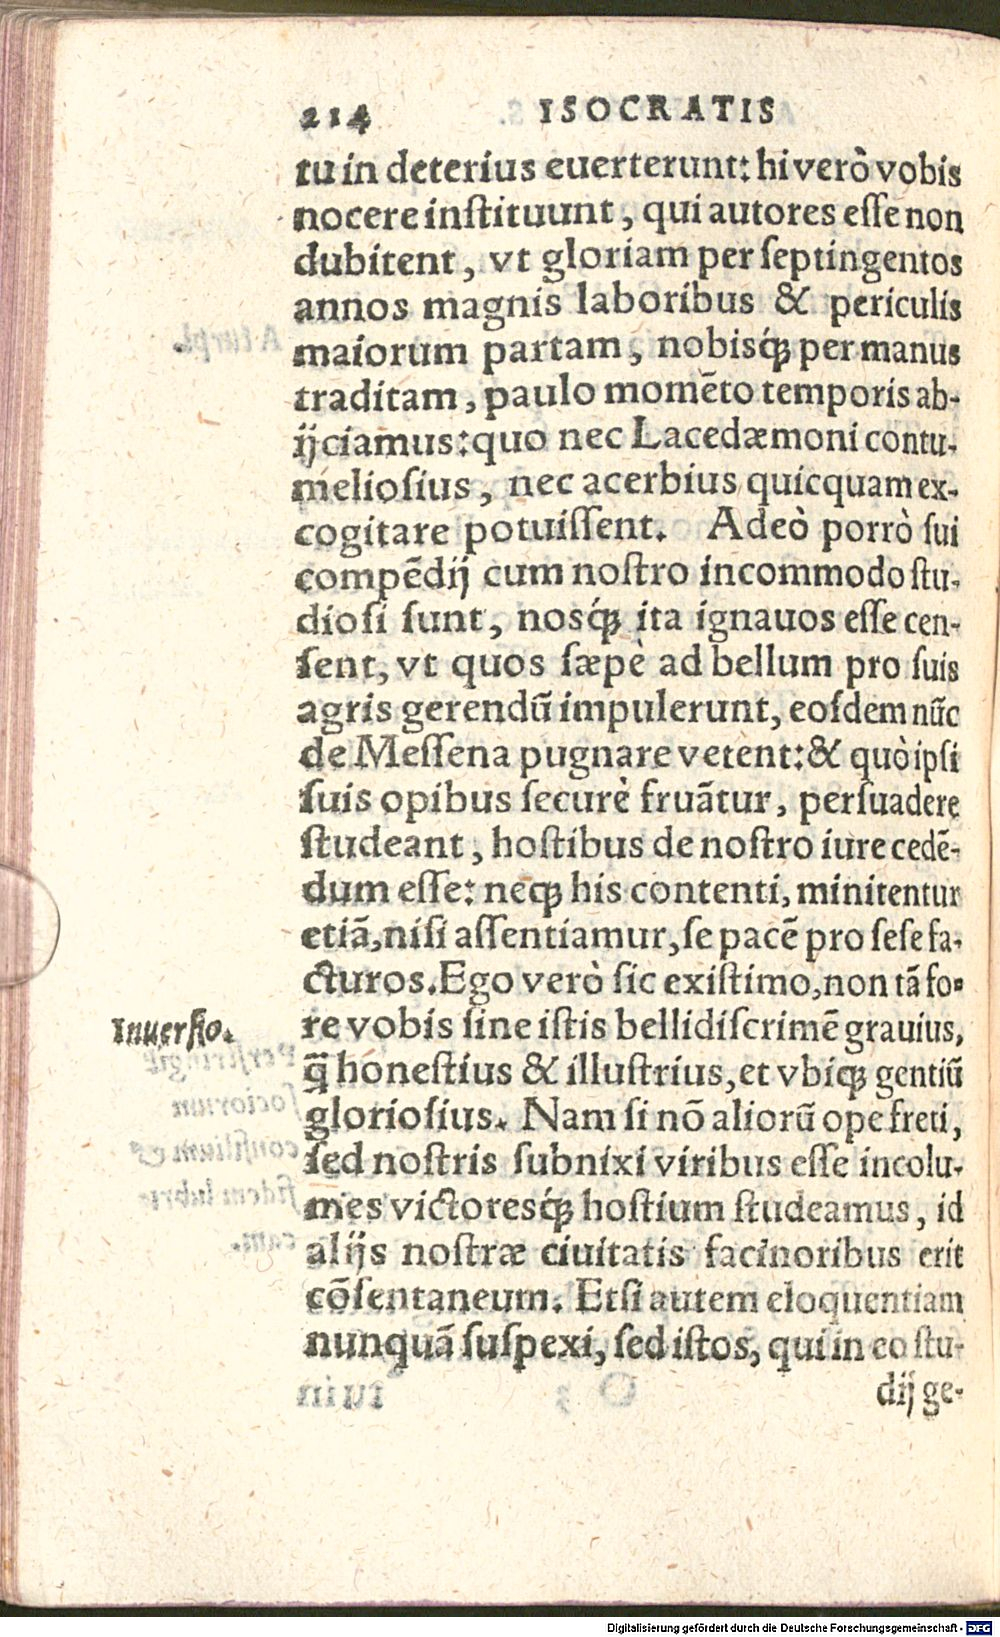 214 ISOCRATIS
tu in deterius euerterunt: hi verò vobis
nocere inſtituunt, qui autores eſſe non
dubitent, vt gloriam per ſeptingentos
annos magnis laboribus & periculis
maiorum partam, nobisq́ꝫ per manus
traditam, paulo momẽto temporis ab-
ijciamus: quo nec Lacedæmoni contu-
melioſius, nec acerbius quicquam ex-
cogitare potuiſſent. Adeò porrò ſui
compẽdij cum noſtro incommodo ſtu-
dioſi ſunt, nosq́ꝫ ita ignauos eſſe cen-
ſent, vt quos ſæpè ad bellum pro ſuis
agris gerendũ impulerunt, eoſdem nũc
de Meſſena pugnare vetent: & quò ipſi
ſuis opibus ſecurè fruãtur, perſuadere
ſtudeant, hoſtibus de noſtro iure cedẽ-
dum eſſe: neqꝫ his contenti, minitentur
etiã, niſi aſſentiamur, ſe pacẽ pro ſeſe fa-
cturos. Ego verò ſic exiſtimo, non tã fo-
Inuerſio.
re vobis ſine iſtis belli diſcrimẽ grauius,
q̃ honeſtius & illuſtrius, et vbiqꝫ gentiũ
glorioſius. Nam ſi nõ aliorũ ope freti,
ſed noſtris ſubnixi viribus eſſe incolu-
mes victoresq́ꝫ hoſtium ſtudeamus, id
alijs noſtræ ciuitatis facinoribus erit
cõſentaneum. Etſi autem eloquentiam
nunquã ſuſpexi, ſed iſtos, qui in eo ſtu-
dij ge-
Digitalisierung gefördert durch die Deutsche Forschungsgemeinschaft - DFG